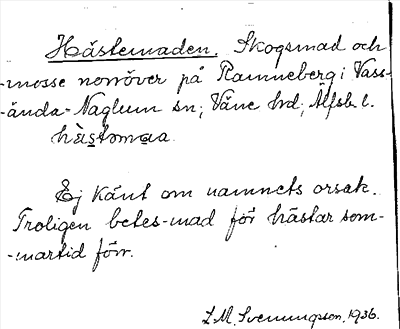 Hästemaden. Skogsmad och
-mosse norröver på Ramneberg i Väss-
-ända-Naglum sn; Väne hd; Älfsb. l.
hästomaa.
Ej känt om namnets orsak.
Troligen betes-mad för hästar som-
-martid förr.
L. M. Svenungsson. 1936.